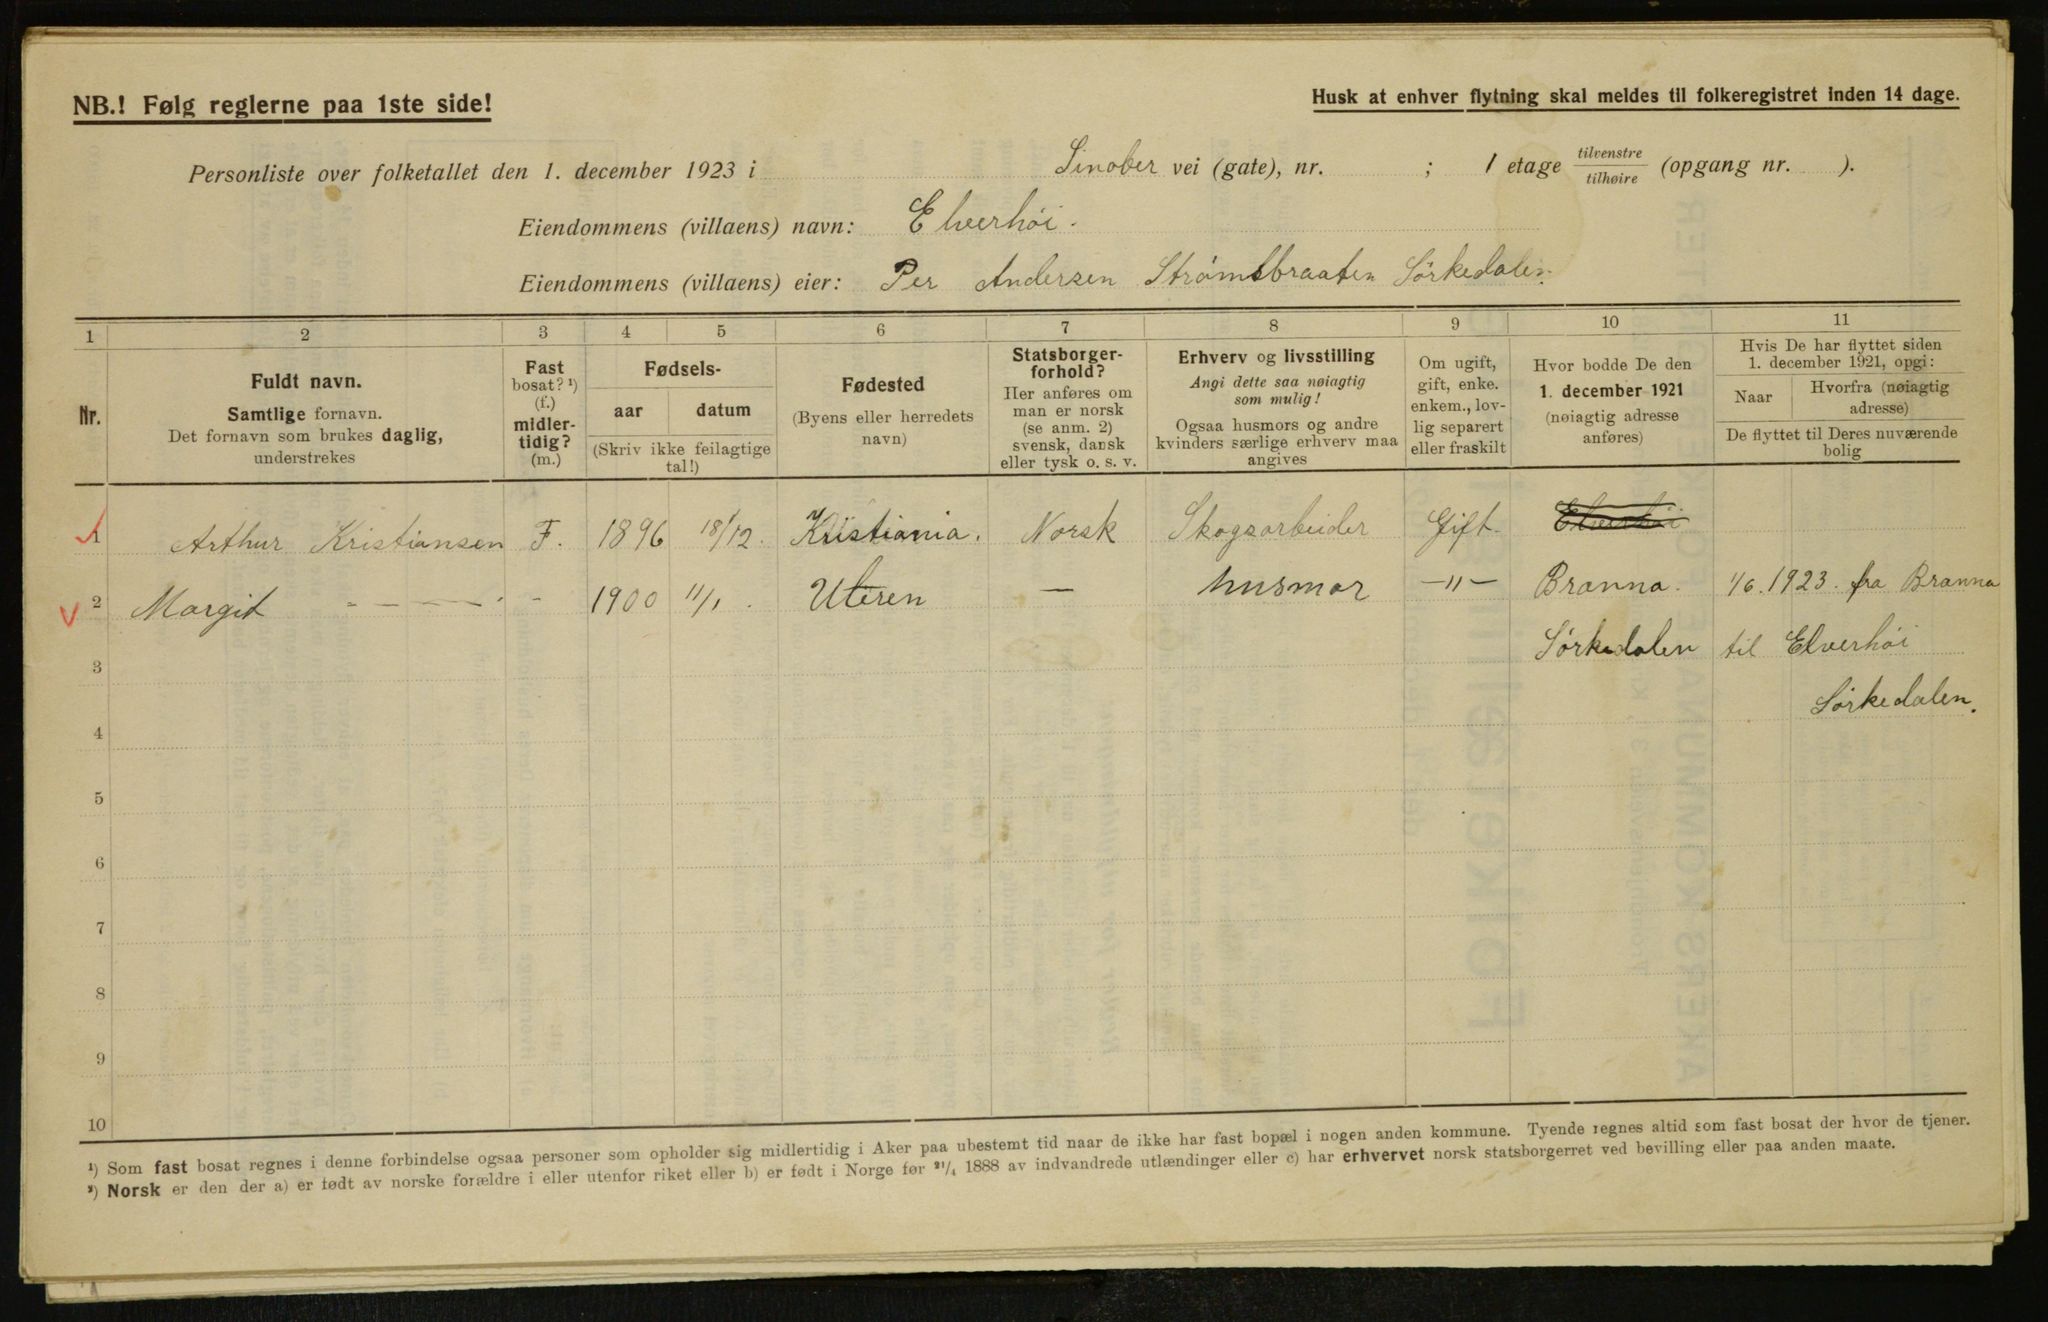 NB.! Følg reglerne paa 1ste side!
Husk at enhver flytning skal meldes til folkeregistret inden 14 dage.
Personliste over folketallet den 1. december 1923 i Sinober vei (gate), nr. ; 1 etage tilvenstre/tilhøire (opgang nr. ).
Eiendommens (villaens) navn: Elverhöi.
Eiendommens (villaens) eier: Per Andersen Strömsbraaten Sörkedalen.
1 2 3 4 5 6 7 8 9 10 11
Nr.
Fuldt navn.
Samtlige fornavn.
Det fornavn som brukes daglig,
understrekes
Fast
bosat? ¹)
(f.)
midler-
tidig?
(m.)
Fødsels-
aar datum
(Skriv ikke feilagtige
tal!)
Fødested
(Byens eller herredets
navn)
Statsborger-
forhold?
Her anføres om
man er norsk
(se anm. 2)
svensk, dansk
eller tysk o. s. v.
Erhverv og livsstilling
Angi dette saa nøiagtig
som mulig!
Ogsaa husmors og andre
kvinders særlige erhverv maa
angives
Om ugift,
gift, enke.
enkem., lov-
lig separert
eller fraskilt
Hvor bodde De den
1. december 1921
(nøiagtig adresse
anføres)
Hvis De har flyttet siden
1. december 1921, opgi:
Naar Hvorfra (nøiagtig
adresse)
De flyttet til Deres nuværende
bolig
1 Arthur Kristiansen F. 1896 18/12. Kristiania. Norsk Skogsarbeider Gift. Elverhöi
2 Margit - — - - 1900 11/1. — husmor —"— Branna. 1/6. 1923. fra Branna
3 Sörkedalen til Elverhöi
Sörkedalen.
4
5
6
7
8
9
10
¹) Som fast bosat regnes i denne forbindelse ogsaa personer som opholder sig midlertidig i Aker paa ubestemt tid naar de ikke har fast bopæl i nogen anden kommune. Tyende regnes altid som fast bosat der hvor de tjener.
²) Norsk er den der a) er født av norske forældre i eller utenfor riket eller b) er født i Norge før ²¹/₄ 1888 av indvandrede utlændinger eller c) har erhvervet norsk statsborgerret ved bevilling eller paa anden maate.